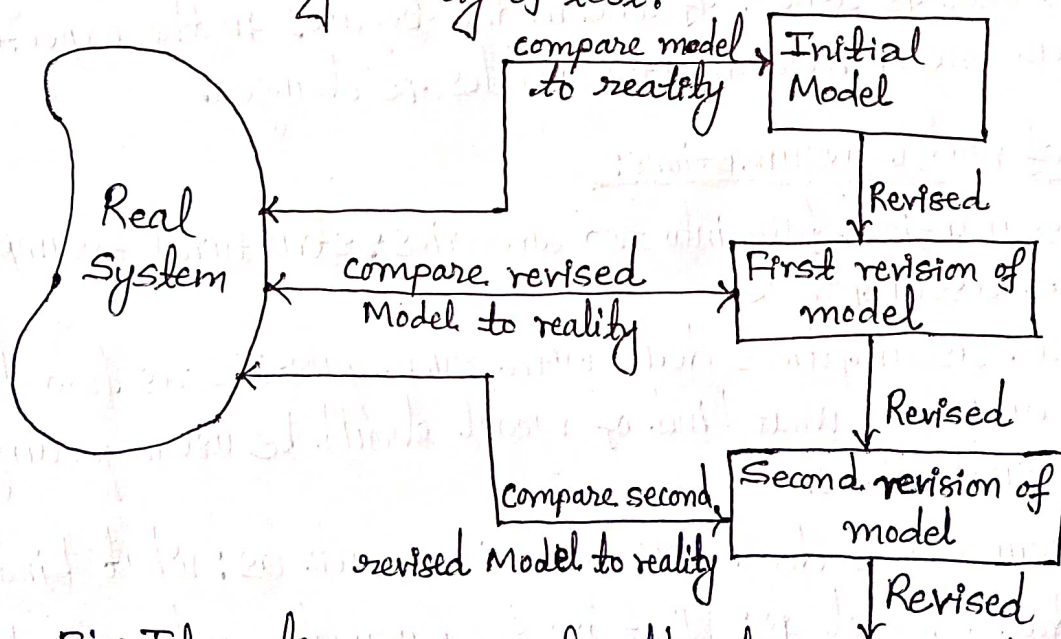 compare model
to reality
Initial
Model
Real
System
Revised
compare revised
Model to reality
First revision of
model
Revised
Compare second
revised Model to reality
Second revision of
model
Revised